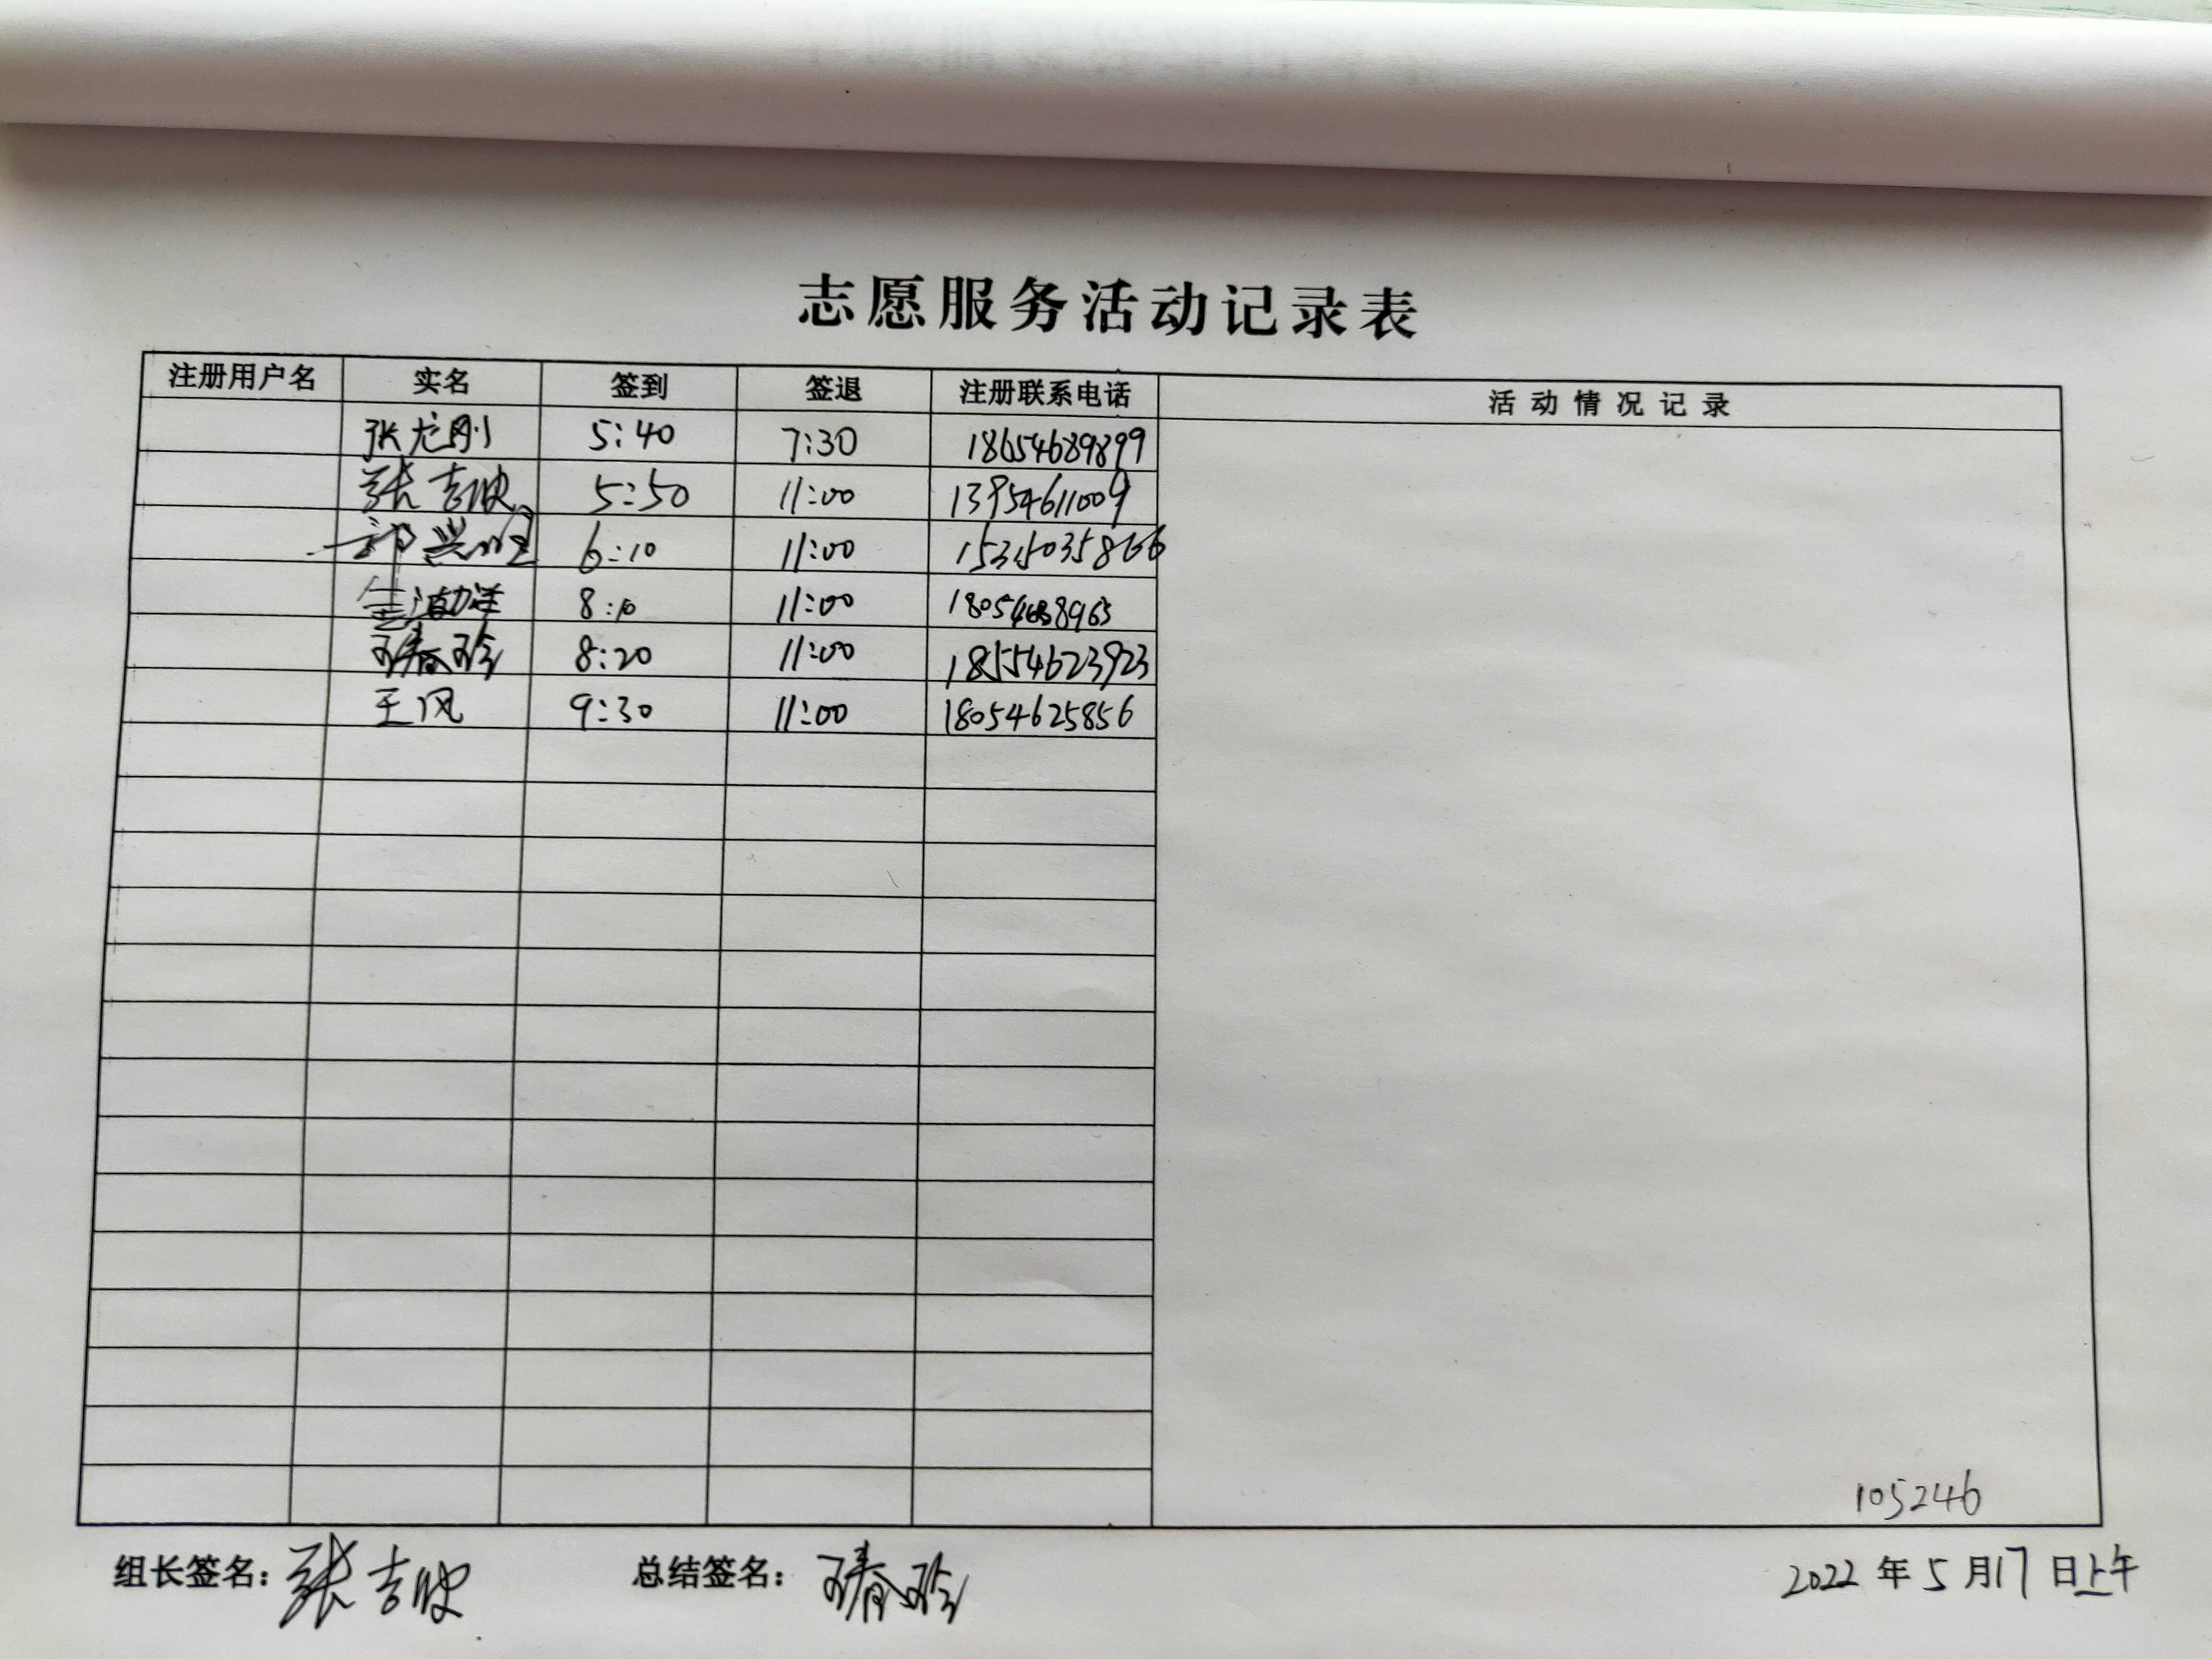 志愿服务活动记录表
注册用户名 实名 签到 签退 注册联系电话 活动情况记录
张龙刚 5:40 7:30 18654689899
张吉 5:50 11:00 13954611009
郭兴 6:10 11:00 15315035866
8:10 11:00
王春玲 8:20 11:00 18554623923
王风 9:30 11:00 18054625856
105246
组长签名: 张吉 总结签名: 王春玲 2022年5月17日上午